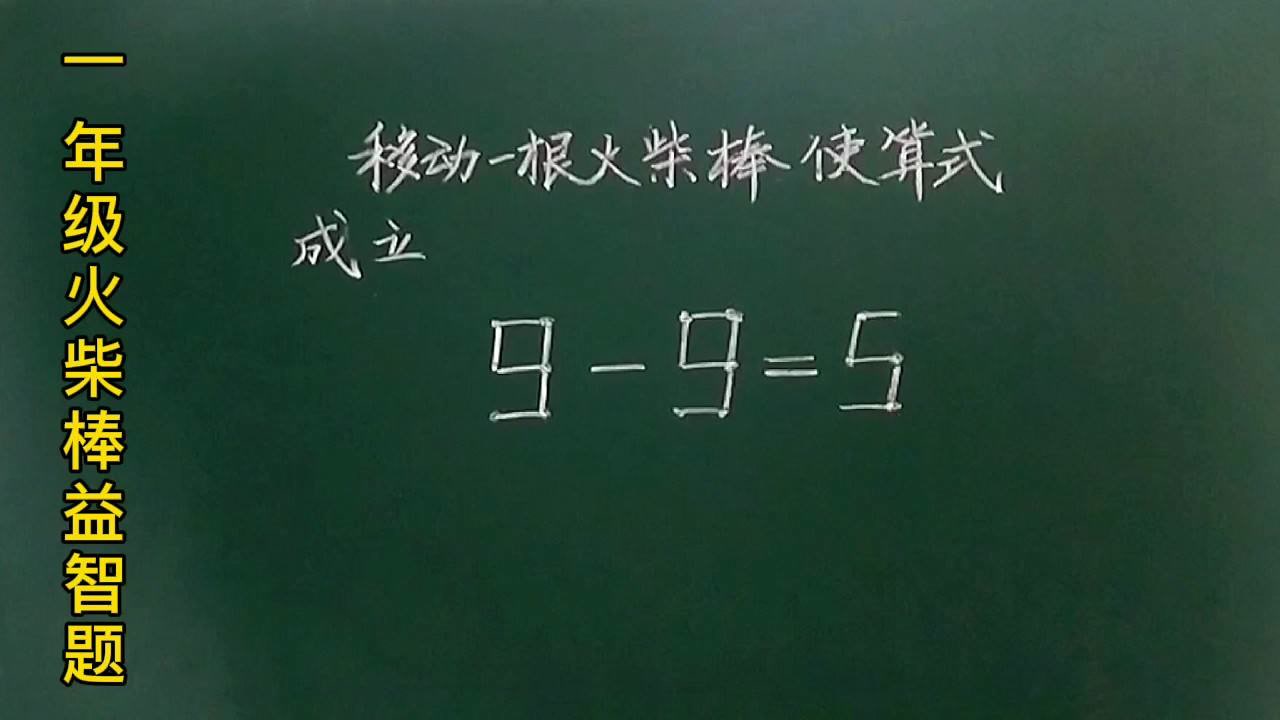 一年级火柴棒益智题
移动一根火柴棒使算式
成立
9-9=5